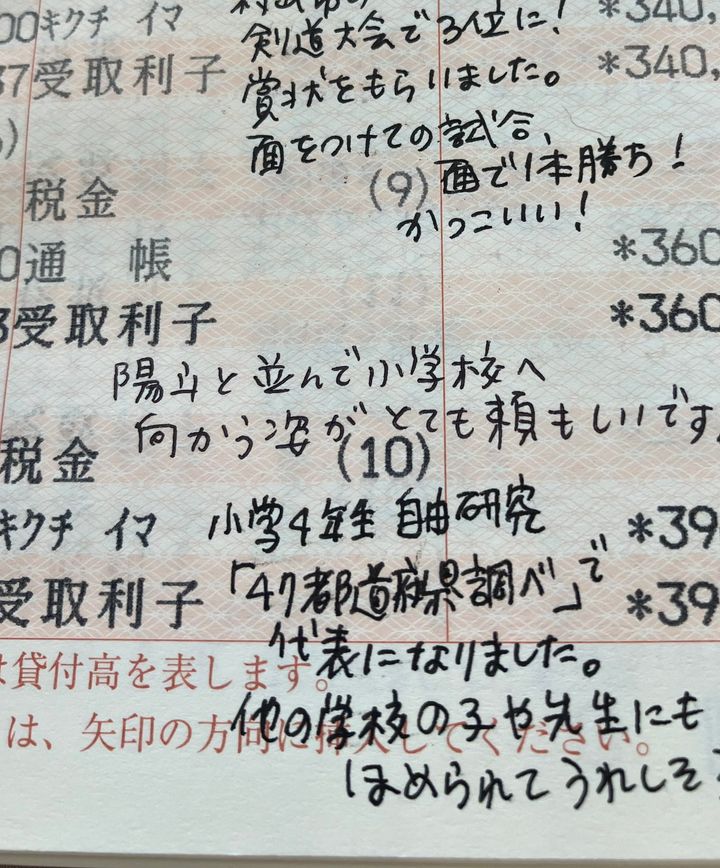 00キクチ イマ *340,
剣道大会で3位に!
37受取利子 *340,
賞状をもらいました。
面をつけての試合、
税金 (9)
面で1本勝ち!
かっこいい!
0通 帳 *360
3受取利子 *360
陽斗と並んで小学校へ
向かう姿がとても頼もしいです
税金 (10)
キクチ イマ *39
小学4年生 自由研究
受取利子 *39
「47都道府県調べ」で
代表になりました。
は貸付高を表します。
他の学校の子や先生にも
は、矢印の方向に挿入してください。
ほめられてうれしそ